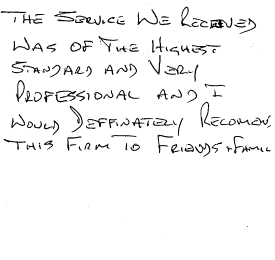 THE SERVICE WE RECEIVED
WAS OF THE HIGHEST
STANDARD AND VERY
PROFESSIONAL AND I
WOULD DEFFINATELY RECOMEN
THIS FIRM TO FRIENDS + FAMIL